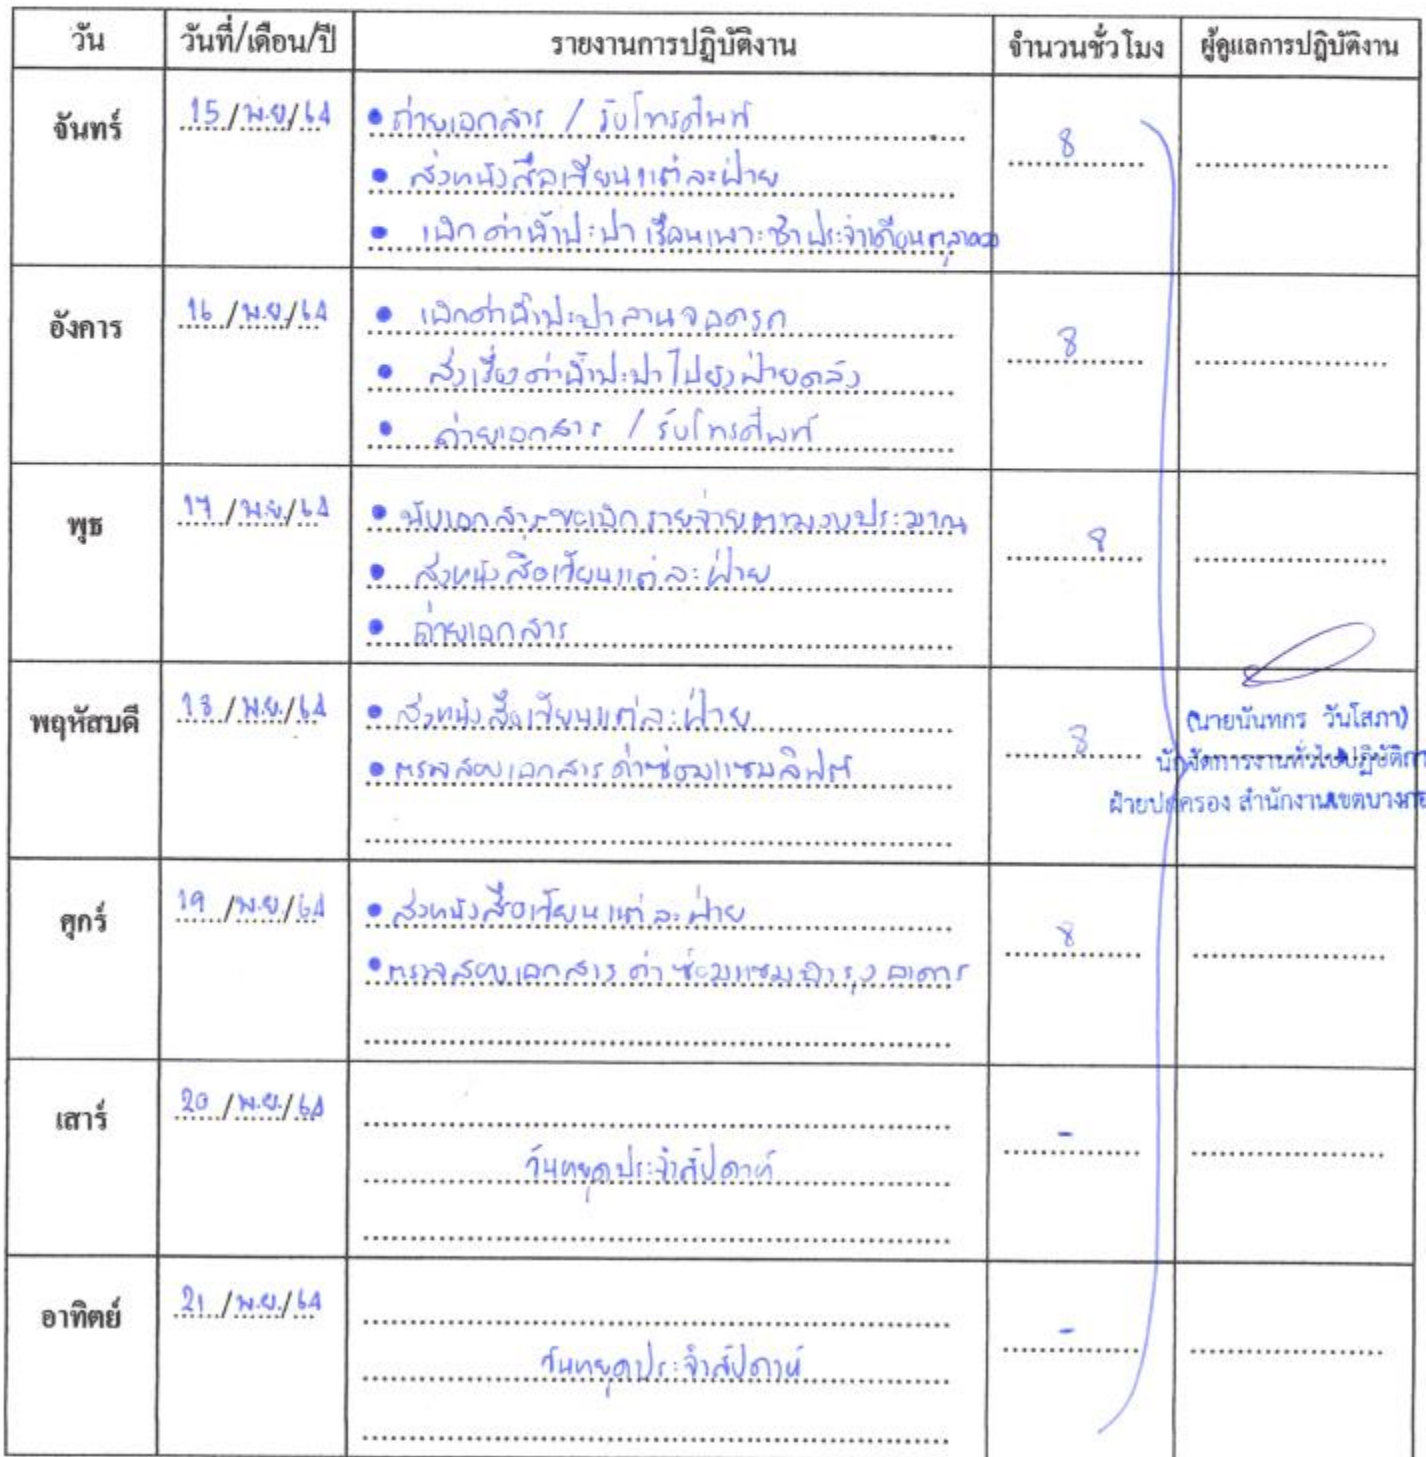 วัน วันที่/เดือน/ปี รายงานการปฏิบัติงาน จำนวนชั่วโมง ผู้ดูแลการปฏิบัติงาน
จันทร์ 15/พ.ย/64 • ถ่ายเอกสาร / รับโทรศัพท์ 8
• ส่งหนังสือเวียนแต่ละฝ่าย
• เบิกค่าน้ำประปา เรือนเพาะชำประจำเดือนตุลาคม
อังคาร 16/พ.ย/64 • เบิกค่าน้ำประปาลานจอดรถ 8
• ส่งเรื่องค่าน้ำประปาไปยังฝ่ายคลัง
• ถ่ายเอกสาร / รับโทรศัพท์
พุธ 17/พ.ย/64 • นับเอกสารขอเบิกรายจ่ายตามงบประมาณ 8
• ส่งหนังสือเวียนแต่ละฝ่าย
• ถ่ายเอกสาร
พฤหัสบดี 18/พ.ย./64 • ส่งหนังสือเวียนแต่ละฝ่าย 8 (นายนันทกร วันโสภา)
• ตรวจสอบเอกสารค่าซ่อมแซมลิฟต์ นักจัดการงานทั่วไปปฏิบัติกา
ฝ่ายปกครอง สำนักงานเขตบางกอ
ศุกร์ 19/พ.ย/64 • ส่งหนังสือเวียนแต่ละฝ่าย 8
• ตรวจสอบเอกสารค่าซ่อมแซมบำรุงอาคาร
เสาร์ 20/พ.ย./64 -
วันหยุดประจำสัปดาห์
อาทิตย์ 21/พ.ย./64 -
วันหยุดประจำสัปดาห์